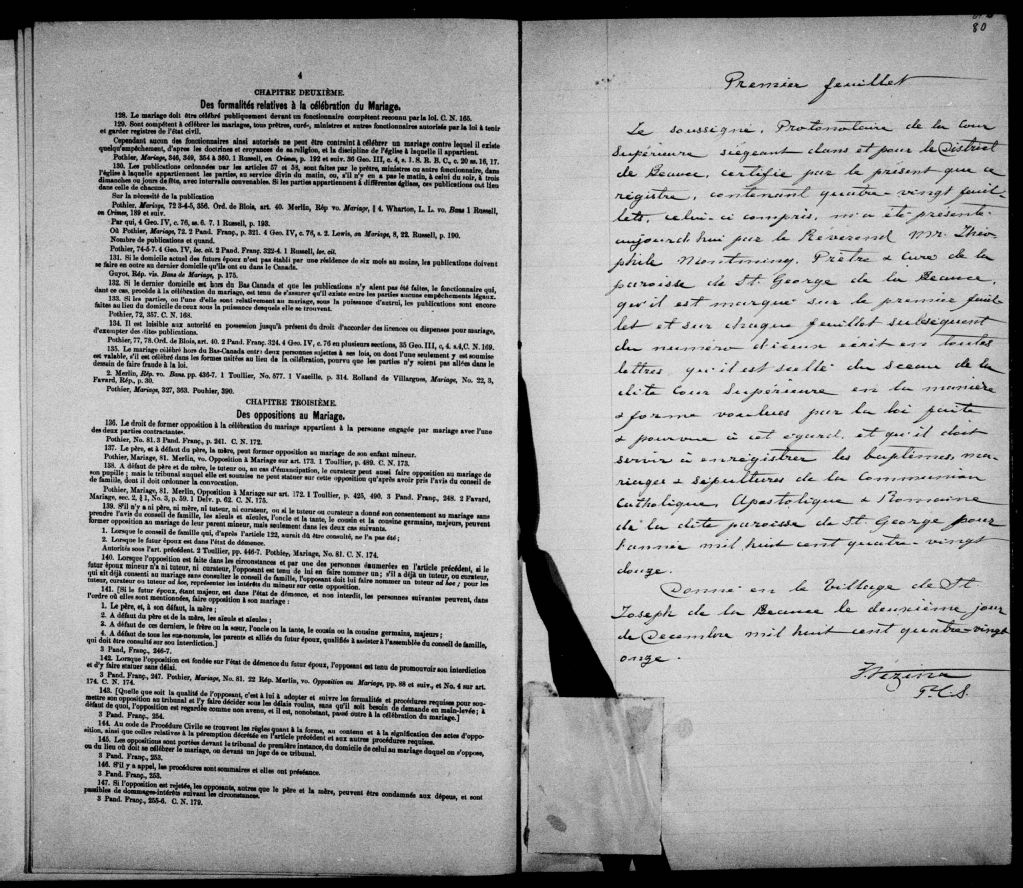 4
CHAPITRE DEUXIÈME.
Des formalités relatives à la célébration du Mariage.
128. Le mariage doit être célébré publiquement devant un fonctionnaire compétent reconnu par la loi. C. N. 165.
129. Sont compétents à célébrer les mariages, tous prêtres, curés, ministres et autres fonctionnaires autorisés par la loi à tenir
et garder registres de l'état civil.
Cependant aucun des fonctionnaires ainsi autorisés ne peut être contraint à célébrer un mariage contre lequel il existe
quelqu'empêchement, d'après les doctrines et croyances de sa religion, et la discipline de l'église à laquelle il appartient.
Pothier, Mariage, 346, 349, 354 & 360. 1 Russell, on Crimes, p. 192 et suiv. 36 Geo. III, c. 4, s. 1. S. R. B. C., c. 20 ss. 16, 17.
130. Les publications ordonnées par les articles 57 et 58, sont faites par le prêtre, ministre ou autre fonctionnaire, dans
l'église à laquelle appartiennent les parties, au service divin du matin, ou, s'il n'y en a pas le matin, à celui du soir, à trois
dimanches ou jours de fête, avec intervalle convenables. Si les parties appartiennent à différentes églises, ces publications ont lieu
dans celle de chacune.
Sur la nécessité de la publication
Pothier, Mariage, 72 3-4-5, 356. Ord. de Blois, art. 40. Merlin, Rép vo. Mariage, § 4. Wharton, L. L. vo. Bans 1 Russell,
on Crimes, 189 et suiv.
Par qui, 4 Geo. IV, c. 76, ss. 6. 7. 1 Russell, p. 193.
Où Pothier, Mariage, 72. 2 Pand. Franç. p. 321. 4 Geo. IV, c. 76, s. 2. Lewis, on Mariage, 8, 22. Russell, p. 190.
Nombre de publications et quand.
Pothier, 74-5-7. 4 Geo. IV, loc. cit. 2 Pand. Franç. 322-4. 1 Russell, loc. cit.
131. Si le domicile actuel des futurs époux n'est pas établi par une résidence de six mois au moins, les publications doivent
se faire en outre au dernier domicile qu'ils ont eu dans le Canada.
Guyot, Rép. vis. Bans de Mariage, p. 175.
132. Si le dernier domicile est hors du Bas Canada et que les publications n'y aient pas été faites, le fonctionnaire qui,
dans ce cas, procède à la célébration du mariage, est tenu de s'assurer qu'il existe entre les parties aucuns empêchements légaux.
133. Si les parties, ou l'une d'elle sont relativement au mariage, sous la puissance d'autrui, les publications sont encore
faites au lieu du domicile de ceux sous la puissance desquels elle se trouvent.
Pothier, 72, 357. C. N. 168.
134. Il est loisible aux autorité en possession jusqu'à présent du droit d'accorder des licences ou dispenses pour mariage,
d'exempter des dites publications.
Pothier, 77, 78. Ord. de Blois, art. 40. 2 Pand. Franç. 324. 4 Geo. IV, c. 76 en plusieurs sections, 35 Geo. III, c, 4. s.4,C. N. 169.
135. Le mariage célébré hors du Bas-Canada entre deux personnes sujettes à ses lois, ou dont l'une seulement y est soumise
est valable, s'il est célébré dans les formes usitées au lieu de la célébration, pourvu que les parties n'y soient pas allées dans le
dessein de faire fraude à la loi.
2. Merlin, Rép. vo. Bans, pp. 436-7. 1 Toullier, No. 577. 1 Vazeille. p. 314. Rolland de Villargues, Mariage, No. 22, 3,
Favard, Rép., p. 30.
Pothier, Mariage, 327, 363. Pouhier, 390.
CHAPITRE TROISIÈME.
Des oppositions au Mariage.
136. Le droit de former opposition à la célébration du mariage appartient à la personne engagée par mariage avec l'une
des deux parties contractantes.
Pothier, No. 81. 3 Pand. Franç., p. 241. C. N. 172.
137. Le père, et à défaut du père, la mère, peut former opposition au mariage de son enfant mineur.
Pothier, Mariage, 81. Merlin, vo. Opposition à Mariage sur art. 173. 1 Toullier, p. 489. C. N. 173.
138. A défaut de père et de mère, le tuteur ou, en cas d'émancipation, le curateur peut aussi faire opposition au mariage de
son pupille ; mais le tribunal auquel elle est soumise ne peut statuer sur cette opposition qu'après avoir pris l'avis du conseil de
famille, dont il doit ordonner la convocation.
Pothier, Mariage, 81. Merlin, Opposition à Mariage sur art. 172. 1 Toullier, p. 425, 490. 3 Pand. Franç., 248. 2 Favard,
Mariage, sec. 2, § 1, No. 3, p. 59. 1 Delv. p. 62. C. N. 175.
139. S'il n'y a ni père, ni mère, ni tuteur, ni curateur, ou si le tuteur ou curateur a donné son consentement au mariage sans
prendre l'avis de conseil de famille, les aïeuls et aïeules, l'oncle et la tante, le cousin et la cousine germains, majeurs, peuvent
former opposition au mariage de leur parent mineur, mais seulement dans les deux cas suivants.
1. Lorsque le conseil de famille qui, d'après l'article 122, aurait dû être consulté, ne l'a pas été ;
2. Lorsque le futur époux est dans l'état de démence.
Autorités sous l'art. précédent. 2 Toullier, pp. 446-7. Pothier, Mariage, No. 81. C. N. 174.
140. Lorsque l'opposition est faite dans les circonstances et par une des personnes énumérées en l'article précédent, si le
futur époux mineur n'a ni tuteur, ni curateur, l'opposant est tenu de lui en faire nommer un ; s'il a déjà un tuteur, ou curateur,
qui ait déjà consenti au mariage sans consulter le conseil de famille, l'opposant doit lui faire nommer un tuteur ad hoc ; pour les
tuteur, curateur ou tuteur ad hoc, représenter les intérêts du mineur sur cette opposition.
141. [Si le futur époux, étant majeur, est dans l'état de démence, et non interdit, les personnes suivantes peuvent, dans
l'ordre où elles sont mentionnées, faire opposition à son mariage :
1. Le père, et, à son défaut, la mère ;
2. A défaut du père et de la mère, les aïeuls et aïeules ;
3. A défaut de ces derniers, le frère ou la sœur, l'oncle ou la tante, le cousin ou la cousine germains, majeurs ;
4. A défaut de tous les sus-nommés, les parents et alliés du futur époux, qualifiés à assister à l'assemblée du conseil de famille,
qui doit être consulté sur son interdiction.]
3 Pand, Franç., 246-7.
142. Lorsque l'opposition est fondée sur l'état de démence du futur époux, l'opposant est tenu de promouvoir son interdiction
et d'y faire statuer sans délai.
3 Pand. Franç., 247. Pothier, Mariage, No. 81. 22 Rép. Merlin, vo. Opposition au Mariage, pp. 88 et suiv., et No. 4 sur art.
174. C. N. 174.
143. [Quelque que soit la qualité de l'opposant, c'est à lui à adopter et suivre les formalité et procédures requises pour sou-
mettre son opposition au tribunal et l'y faire décider sous les délais voulus, sans qu'il soit besoin de demande en main-levée ; à
défaut de quoi, l'opposition est regardée comme non avenu, et il est, nonobstant, passé outre à la célébration du mariage.]
3 Pand. Franç., 254.
144. Au code de Procédure Civile se trouvent les règles quant à la forme, au contenu et à la signification des actes d'oppo-
sition, ainsi que celles relatives à la péremption décrétée en l'article précédent et aux autres procédures requises.
145. Les oppositions sont portées devant le tribunal de première instance, du domicile de celui au mariage duquel on s'oppose,
ou du lieu où doit se célébrer le mariage, ou devant un juge de ce tribunal.
3 Pand. Franç., 253.
146. S'il y a appel, les procédures sont sommaires et elles ont préséance.
3 Pand. Franç., 253.
147. Si l'opposition est rejetée, les opposants, autres que le père et la mère, peuvent être condamnés aux dépens, et sont
passibles de dommages-intérêts suivant les circonstances.
3 Pand. Franç., 255-6. C. N. 179.
80
Premier feuillet
Le soussigné, Protonotaire de la Cour
Supérieure siégeant dans et pour le District
de Beauce, certifie par le présent que ce
registre, contenant quatre-vingt feuil-
lets, celui-ci compris, m'a été présenté
aujourd'hui par le Révérend Mr. Théo-
phile Montminy, Prêtre & curé de la
paroisse de St. George de la Beauce,
qu'il est marqué sur le premier feuil-
let et sur chaque feuillet subséquent
du numéro d'iceux écrit en toutes
lettres, qu'il est scellé du sceau de la
dite Cour Supérieure en la manière
& forme voulues par la loi faite
& pourvue à cet égard, et qu'il doit
servir à enrégistrer les baptêmes, ma-
riages & sépultures de la communion
Catholique, Apostolique & Romaine
de la dite paroisse de St. George pour
l'année mil huit cent quatre-vingt
douze.
Donné en le Village de St
Joseph de la Beauce le deuxième jour
de Decembre mil huit cent quatre-vingt
onze.
J. Vézina
P.C.S.